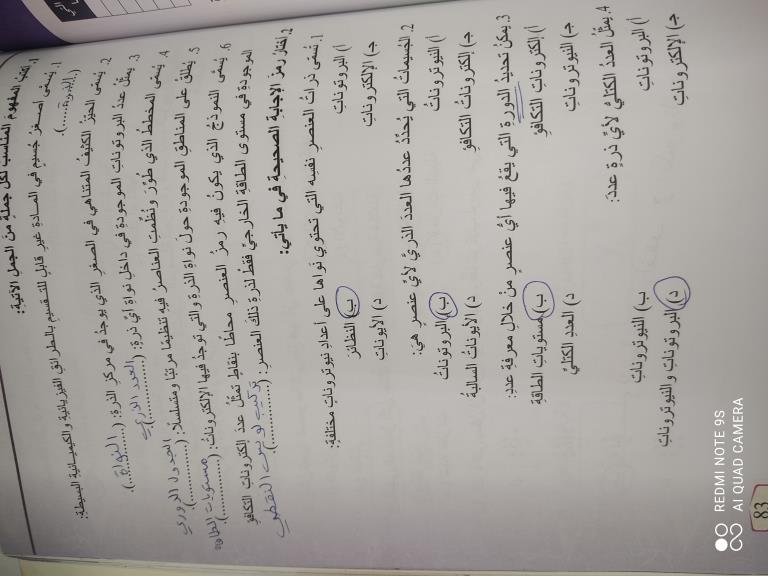 1. أكتبُ المفهومَ المناسبَ لكلِّ جملةٍ منَ الجملِ الآتيةِ:
1. يُسمّى أصغرُ جُسيمٍ في المادةِ غيرِ قابلٍ للتقسيمِ بالطرائقِ الفيزيائيةِ والكيميائيةِ البسيطةِ:
(..............).
2. يُسمّى الحيّزُ الكثيفُ المتناهي في الصغرِ الذي يوجدُ في مركزِ الذرةِ: (النواة).
3. يمثّلُ عددَ البروتوناتِ الموجودةِ في داخلِ نواةِ أيِّ ذرةٍ: (العدد الذري).
4. يُسمّى المخططُ الذي طُوِّرَ ونُظِّمتِ العناصرُ فيهِ تنظيمًا مرتبًا ومتسلسلًا: (الجدول الدوري).
5. يُطلقُ على المناطقِ الموجودةِ حولَ نواةِ الذرةِ والتي توجدُ فيها الإلكتروناتُ: (مستويات الطاقة).
6. يُسمّى النموذجُ الذي يكونُ فيهِ رمزُ العنصرِ محاطًا بنقاطٍ تمثّلُ عددَ إلكتروناتِ التكافؤِ
الموجودةِ في مستوى الطاقةِ الخارجيِّ فقطْ لذرةِ ذلكَ العنصرِ: (تركيب لويس النقطي).
2. أختارُ رمزَ الإجابةِ الصحيحةِ في ما يأتي:
1. تُسمّى ذراتُ العنصرِ نفسِه التي تحتوي نواها على أعدادِ نيوتروناتٍ مختلفةٍ:
أ) البروتوناتِ ب) النظائرَ
جـ) الإلكتروناتِ د) الأيوناتِ
2. الجسيماتُ التي يُحدِّدُ عددُها العددَ الذريَّ لأيِّ عنصرٍ هيَ:
أ) النيوتروناتُ ب) البروتوناتُ
جـ) إلكتروناتُ التكافؤِ د) الأيوناتُ السالبةُ
3. يمكنُ تحديدُ الدورةِ التي يقعُ فيها أيُّ عنصرٍ منْ خلالِ معرفةِ عددِ:
أ) إلكتروناتِ التكافؤِ ب) مستوياتِ الطاقةِ
جـ) النيوتروناتِ د) العددِ الكتليِّ
4. يمثّلُ العددُ الكتليُّ لأيِّ ذرةٍ عددَ:
أ) البروتوناتِ ب) النيوتروناتِ
جـ) الإلكتروناتِ د) البروتوناتِ والنيوتروناتِ
83
REDMI NOTE 9S
AI QUAD CAMERA